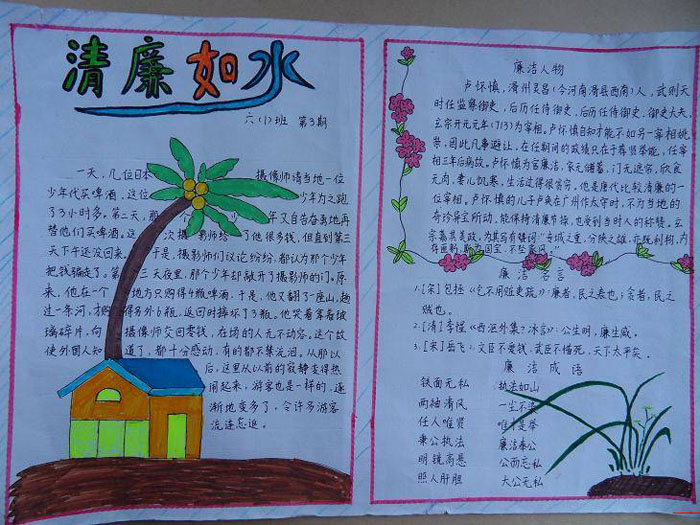 清廉如水
六(1)班 第3期
一天，几位日本摄像师请当地一位
少年代买啤酒，这位少年为之跑
了3小时多。第二天，那个少年又自告奋勇地再
替他们买啤酒。这次摄影师给了他很多钱，但直到第三
天下午还没回来。于是，摄影师们议论纷纷，都认为那个少年
把钱骗走了。第三天夜里，那个少年却敲开了摄影师的门。原
来，他在一个地方只购得4瓶啤酒，于是，他又翻了一座山，趟
过一条河，才购得另外6瓶，返回时摔坏了3瓶。他哭着拿着玻
璃碎片，向摄像师交回零钱，在场的人无不动容。这个故
使外国人知道了，都十分感动，有的都不禁沅泪。从那以
后，这里从以前的寂静变得热
闹起来，游客也是一样的，逐
渐地变多了，令许多游客
流连忘返。
廉洁人物
卢怀慎，滑州灵昌(今河南滑县西南)人，武则天
时任监察御史，后历任侍御史，后历任侍御史、御史大夫，
玄宗开元元年(713)为宰相。卢怀慎自知才能不如另一宰相姚
崇，因此凡事避让，在任期间的政绩只在于尊贤举能，任宰
相三年后病故。卢怀慎为官廉洁，家无储蓄，门无遮帘，饮食
无肉，妻儿饥寒，生活过得很贫穷，他是唐代比较清廉的一
位宰相。卢怀慎的儿子卢奂在广州作太守时，不为当地的
奇珍异宝所动，能保持清廉节操，也受到当时人的称赞。玄
宗嘉其美政，为其写有赞词“专城之重，分陕之雄，亦既利物，内
存匪躬，斯为国宝，不坠家风。”
廉洁名言
1.[宋]包拯《乞不用赃吏疏》：廉者，民之表也；贪者，民之
贼也。
2.[清]李惺《西沤外集·冰言》：公生明，廉生威。
3.[宋]岳飞：文臣不爱钱，武臣不惜死，天下太平矣。
廉洁成语
铁面无私 执法如山
两袖清风 一尘不染
任人唯贤 唯才是举
秉公执法 廉洁奉公
明镜高悬 公而忘私
照人肝胆 大公无私